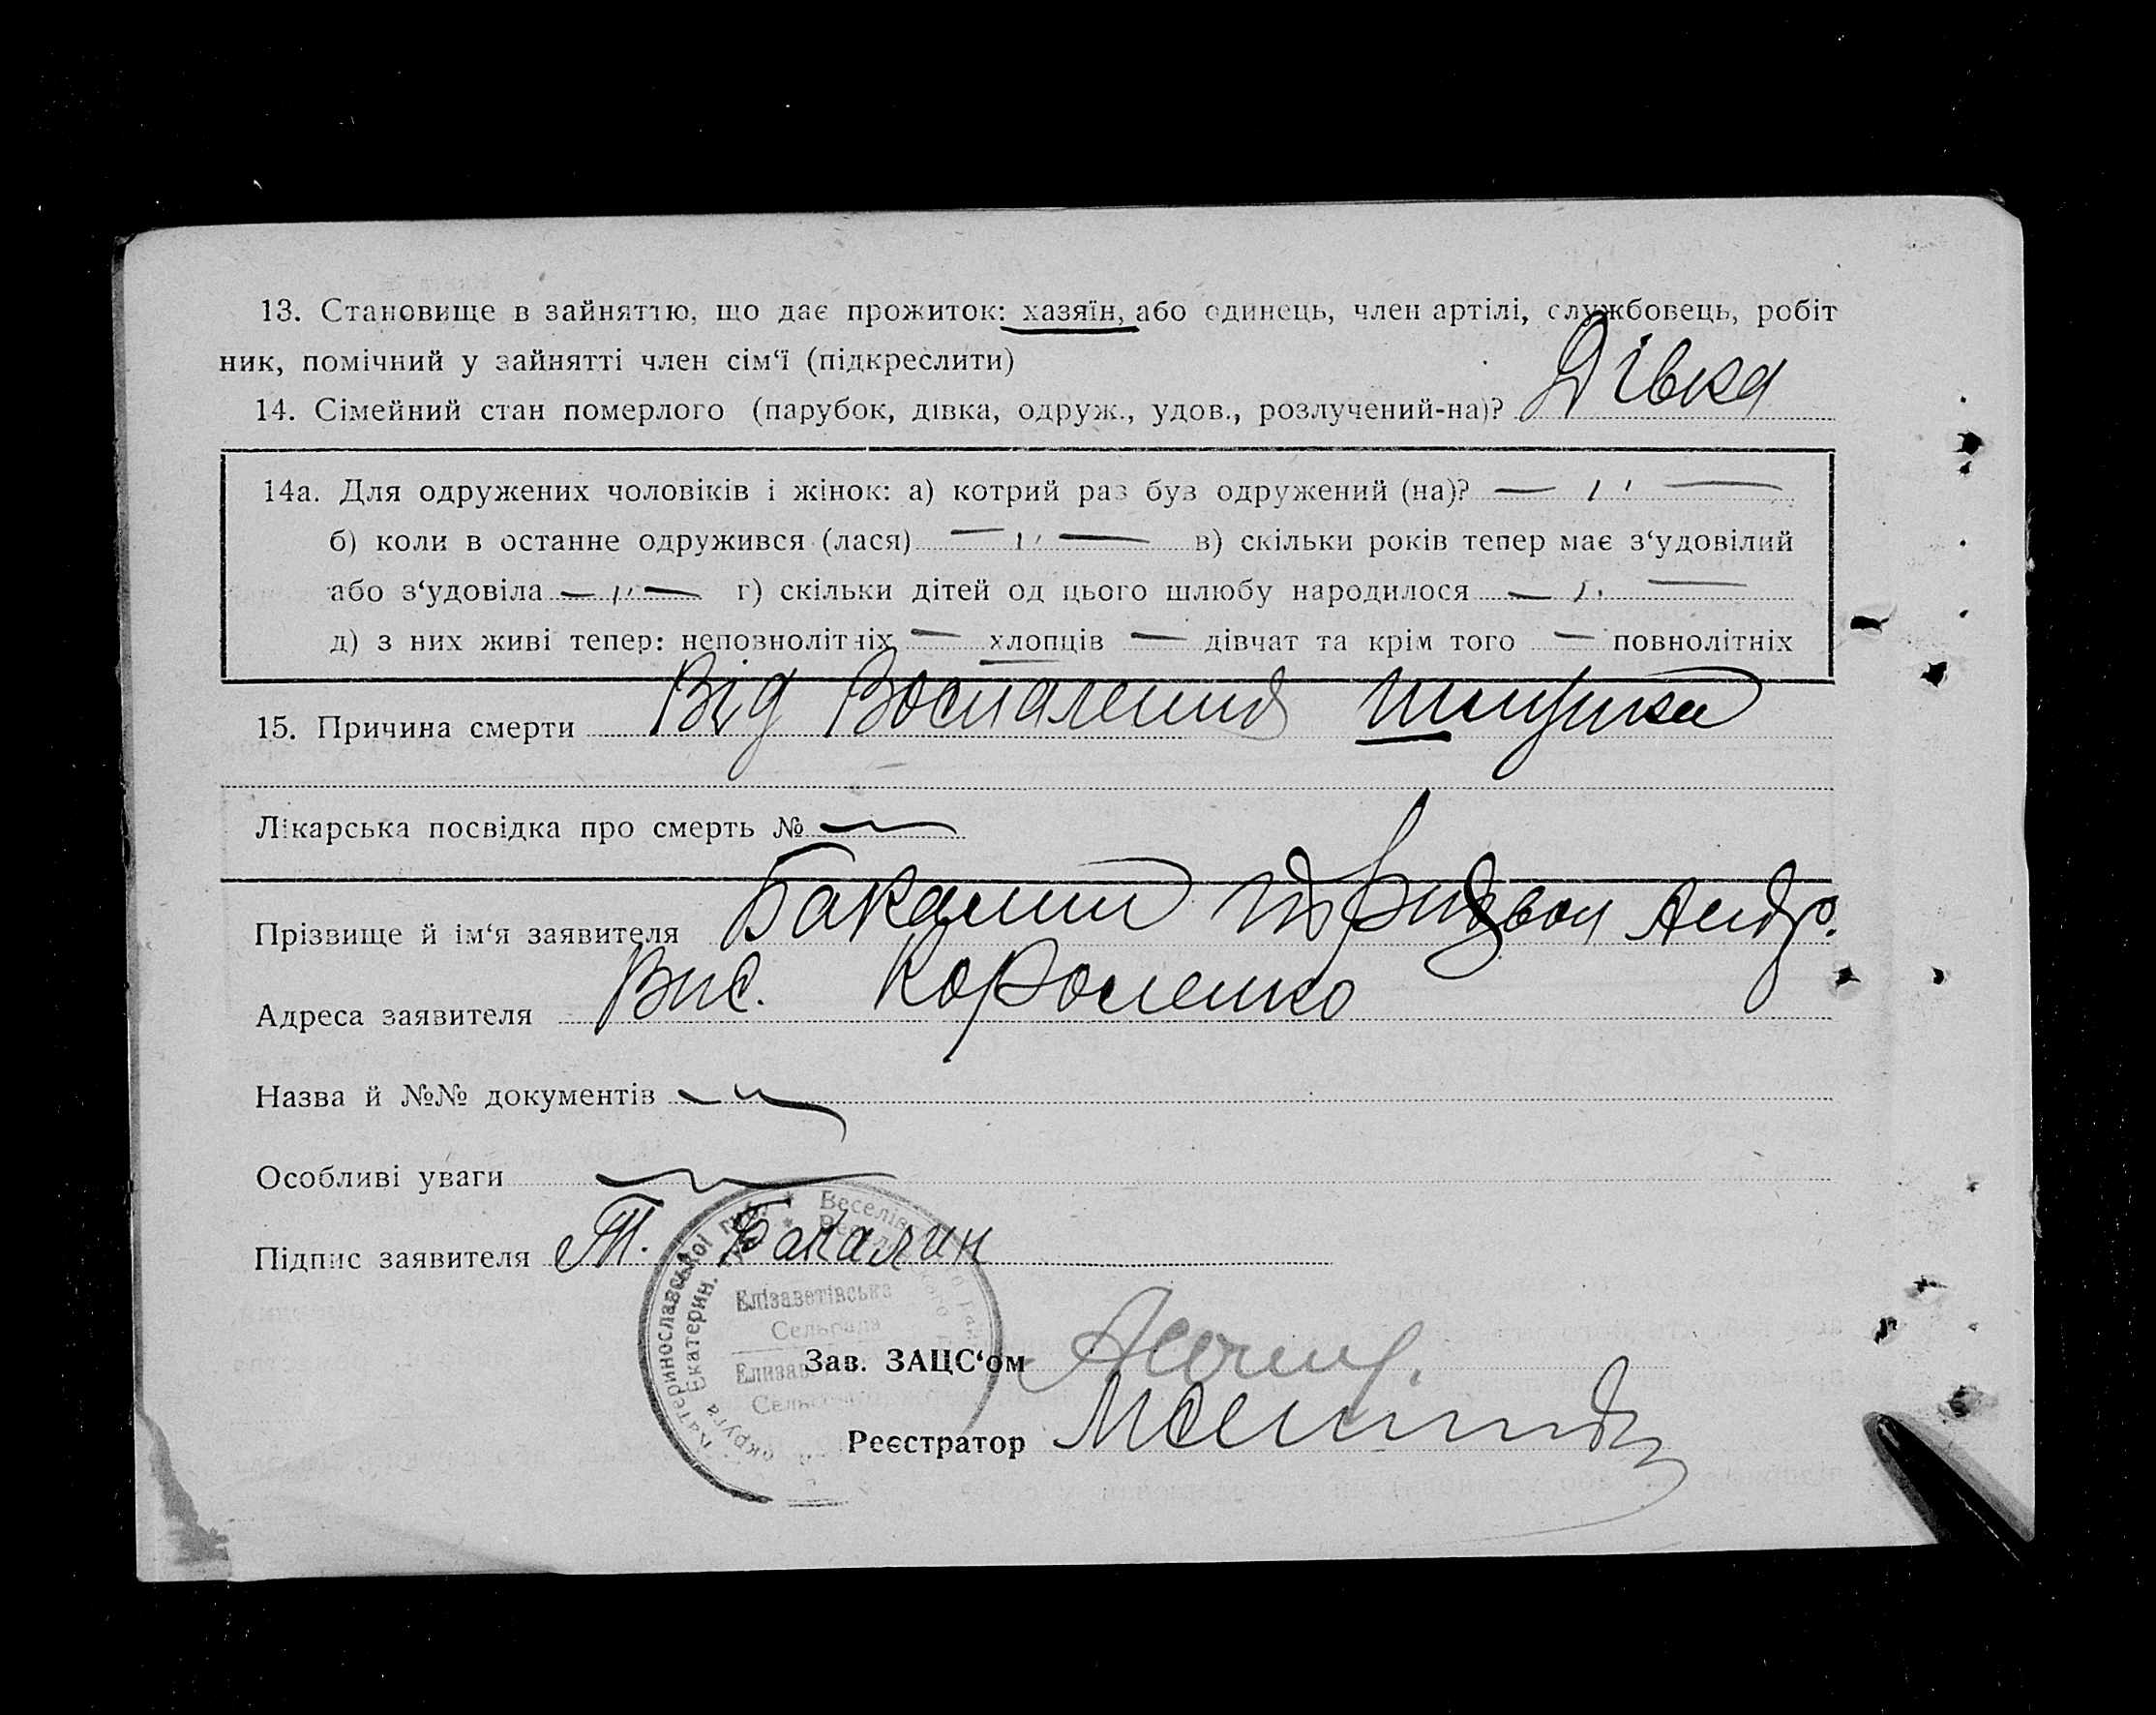 13. Становище в зайняттю, що дає прожиток: хазяїн, або одинець, член артілі, службовець, робіт
ник, помічний у зайнятті член сім‘ї (підкреслити)
14. Сімейний стан померлого (парубок, дівка, одруж., удов., розлучений-на)? Дівка
14а. Для одружених чоловіків і жінок: а) котрий раз був одружений (на)? — " —
б) коли в останне одружився (лася) — " — в) скільки років тепер має з‘удовілий
або з‘удовіла — " — г) скільки дітей од цього шлюбу народилося — " —
д) з них живі тепер: неповнолітніх — хлопців — дівчат та крім того — повнолітніх
15. Причина смерти Від Воспаления
Лікарська посвідка про смерть № —
Прізвище й ім‘я заявителя Бакалин Андр.
Адреса заявителя Вис. Короленко
Назва й №№ документів
Особливі уваги
Підпис заявителя Т. Бакалин
Катеринославської губ. * Веселів
округа Екатерин. губ. *
Елізаветівська
Сельрада
Зав. ЗАЦС‘ом
Реєстратор